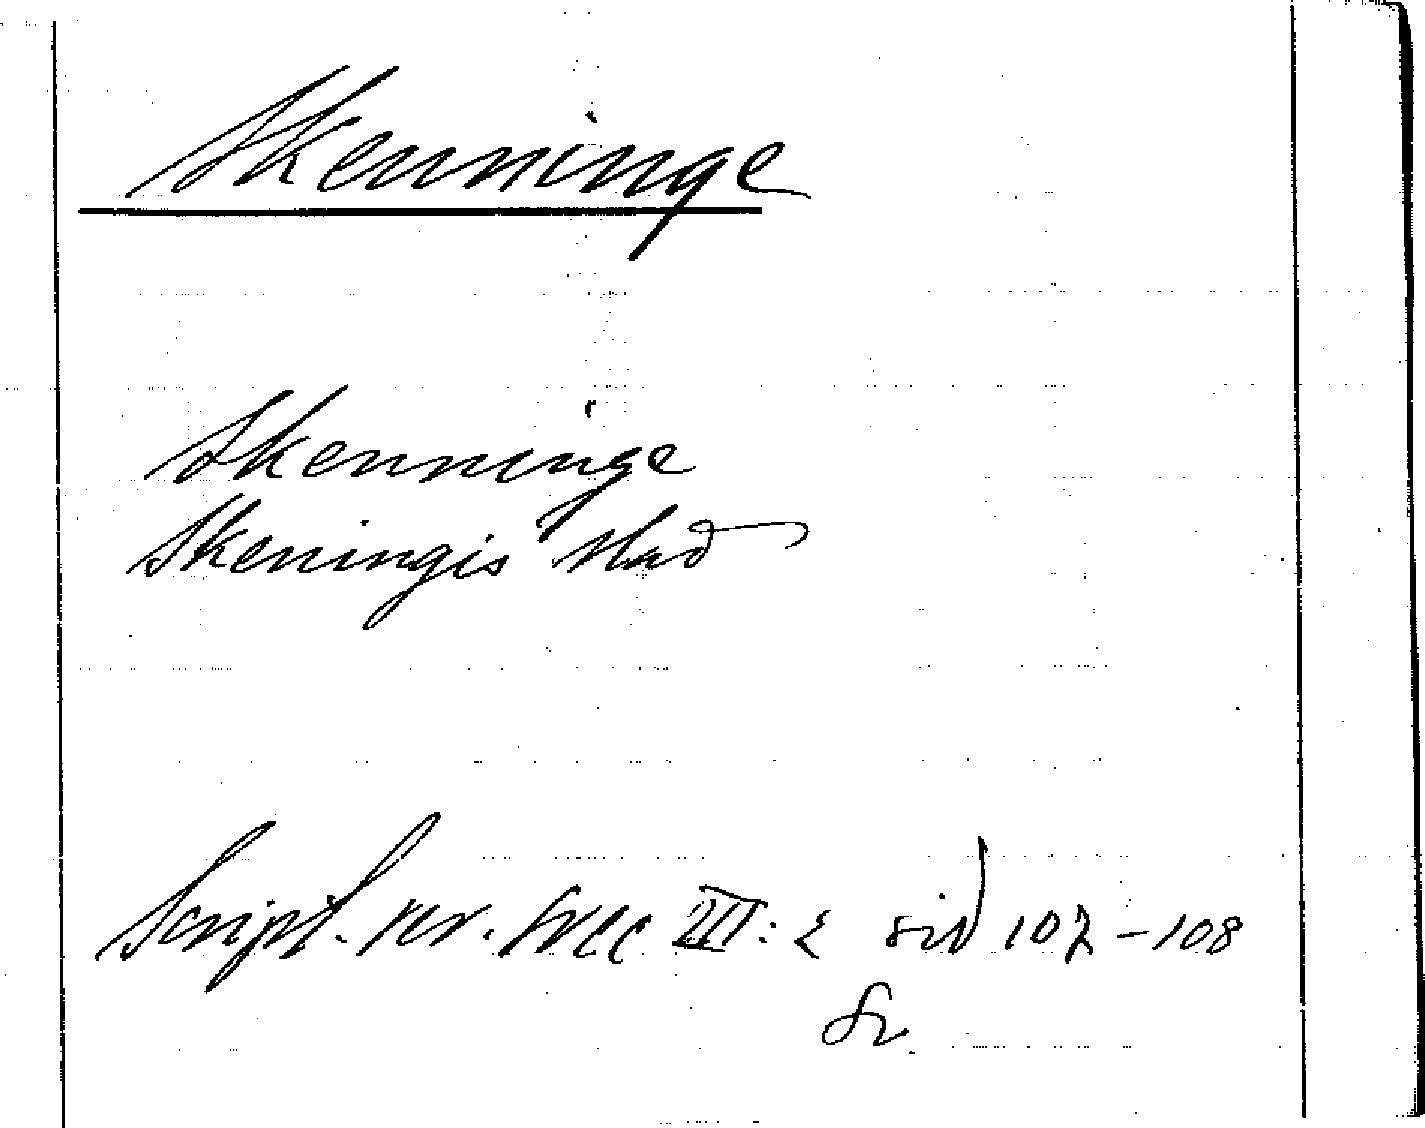 Skenninge
Skenninge
Skeningis stad
Script. rer. svec III: 2 sid 107-108
Sv.